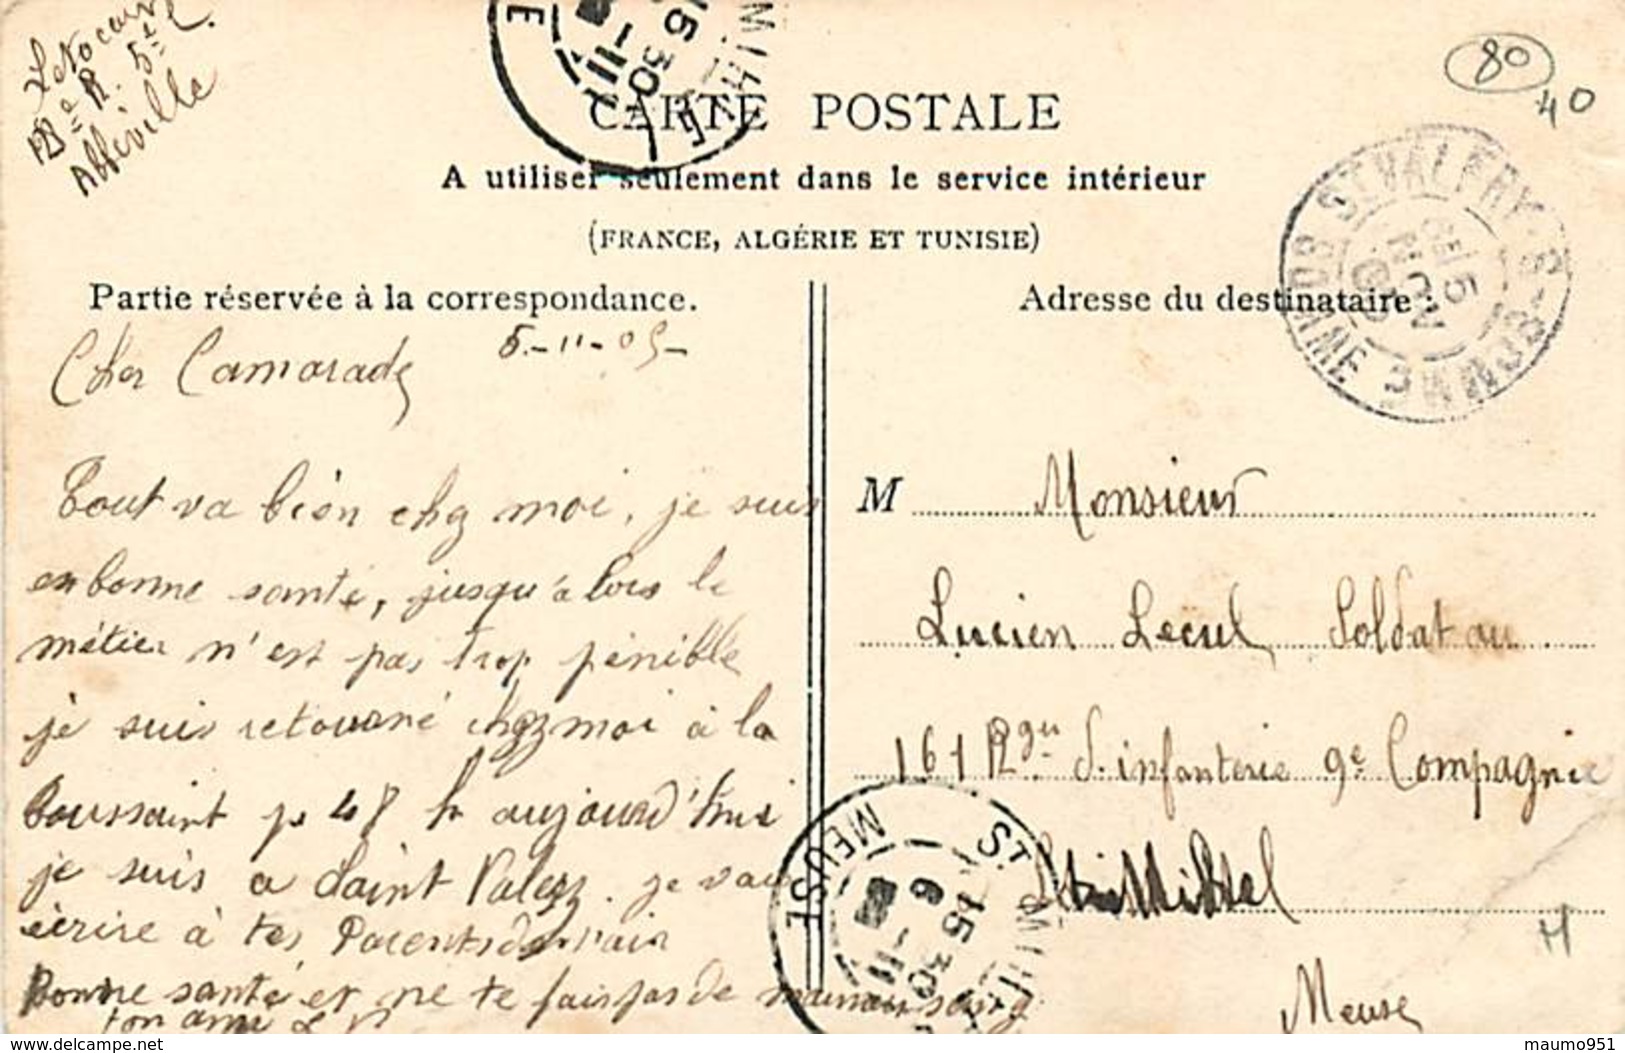 128e R. 5e
Abbéville
80
40
CARTE POSTALE
A utiliser seulement dans le service intérieur
(FRANCE, ALGÉRIE ET TUNISIE)
ST VALERY-S-SOMME
SOMME
5
NOV
Partie réservée à la correspondance.
5-11-05-
Cher Camarade
Tout va bién chez moi, je suis
en bonne santé, jusqu'à lors le
métier n'est pas trop pénible
je suis retourné chez moi à la
Toussaint pr 48 h aujourd'hui
je suis a Saint Valery. je vais
écrire à tes Parents demain
Bonne santé et ne te fais pas de mauvais sang
ton ami
Adresse du destinataire :
M Monsieur
Lucien Lecul Soldat au
161 Rgu d'infanterie 9e Compagnie
St Mihiel
Meuse
ST MIHIEL
MEUSE
15 30
6 -11
maumo951